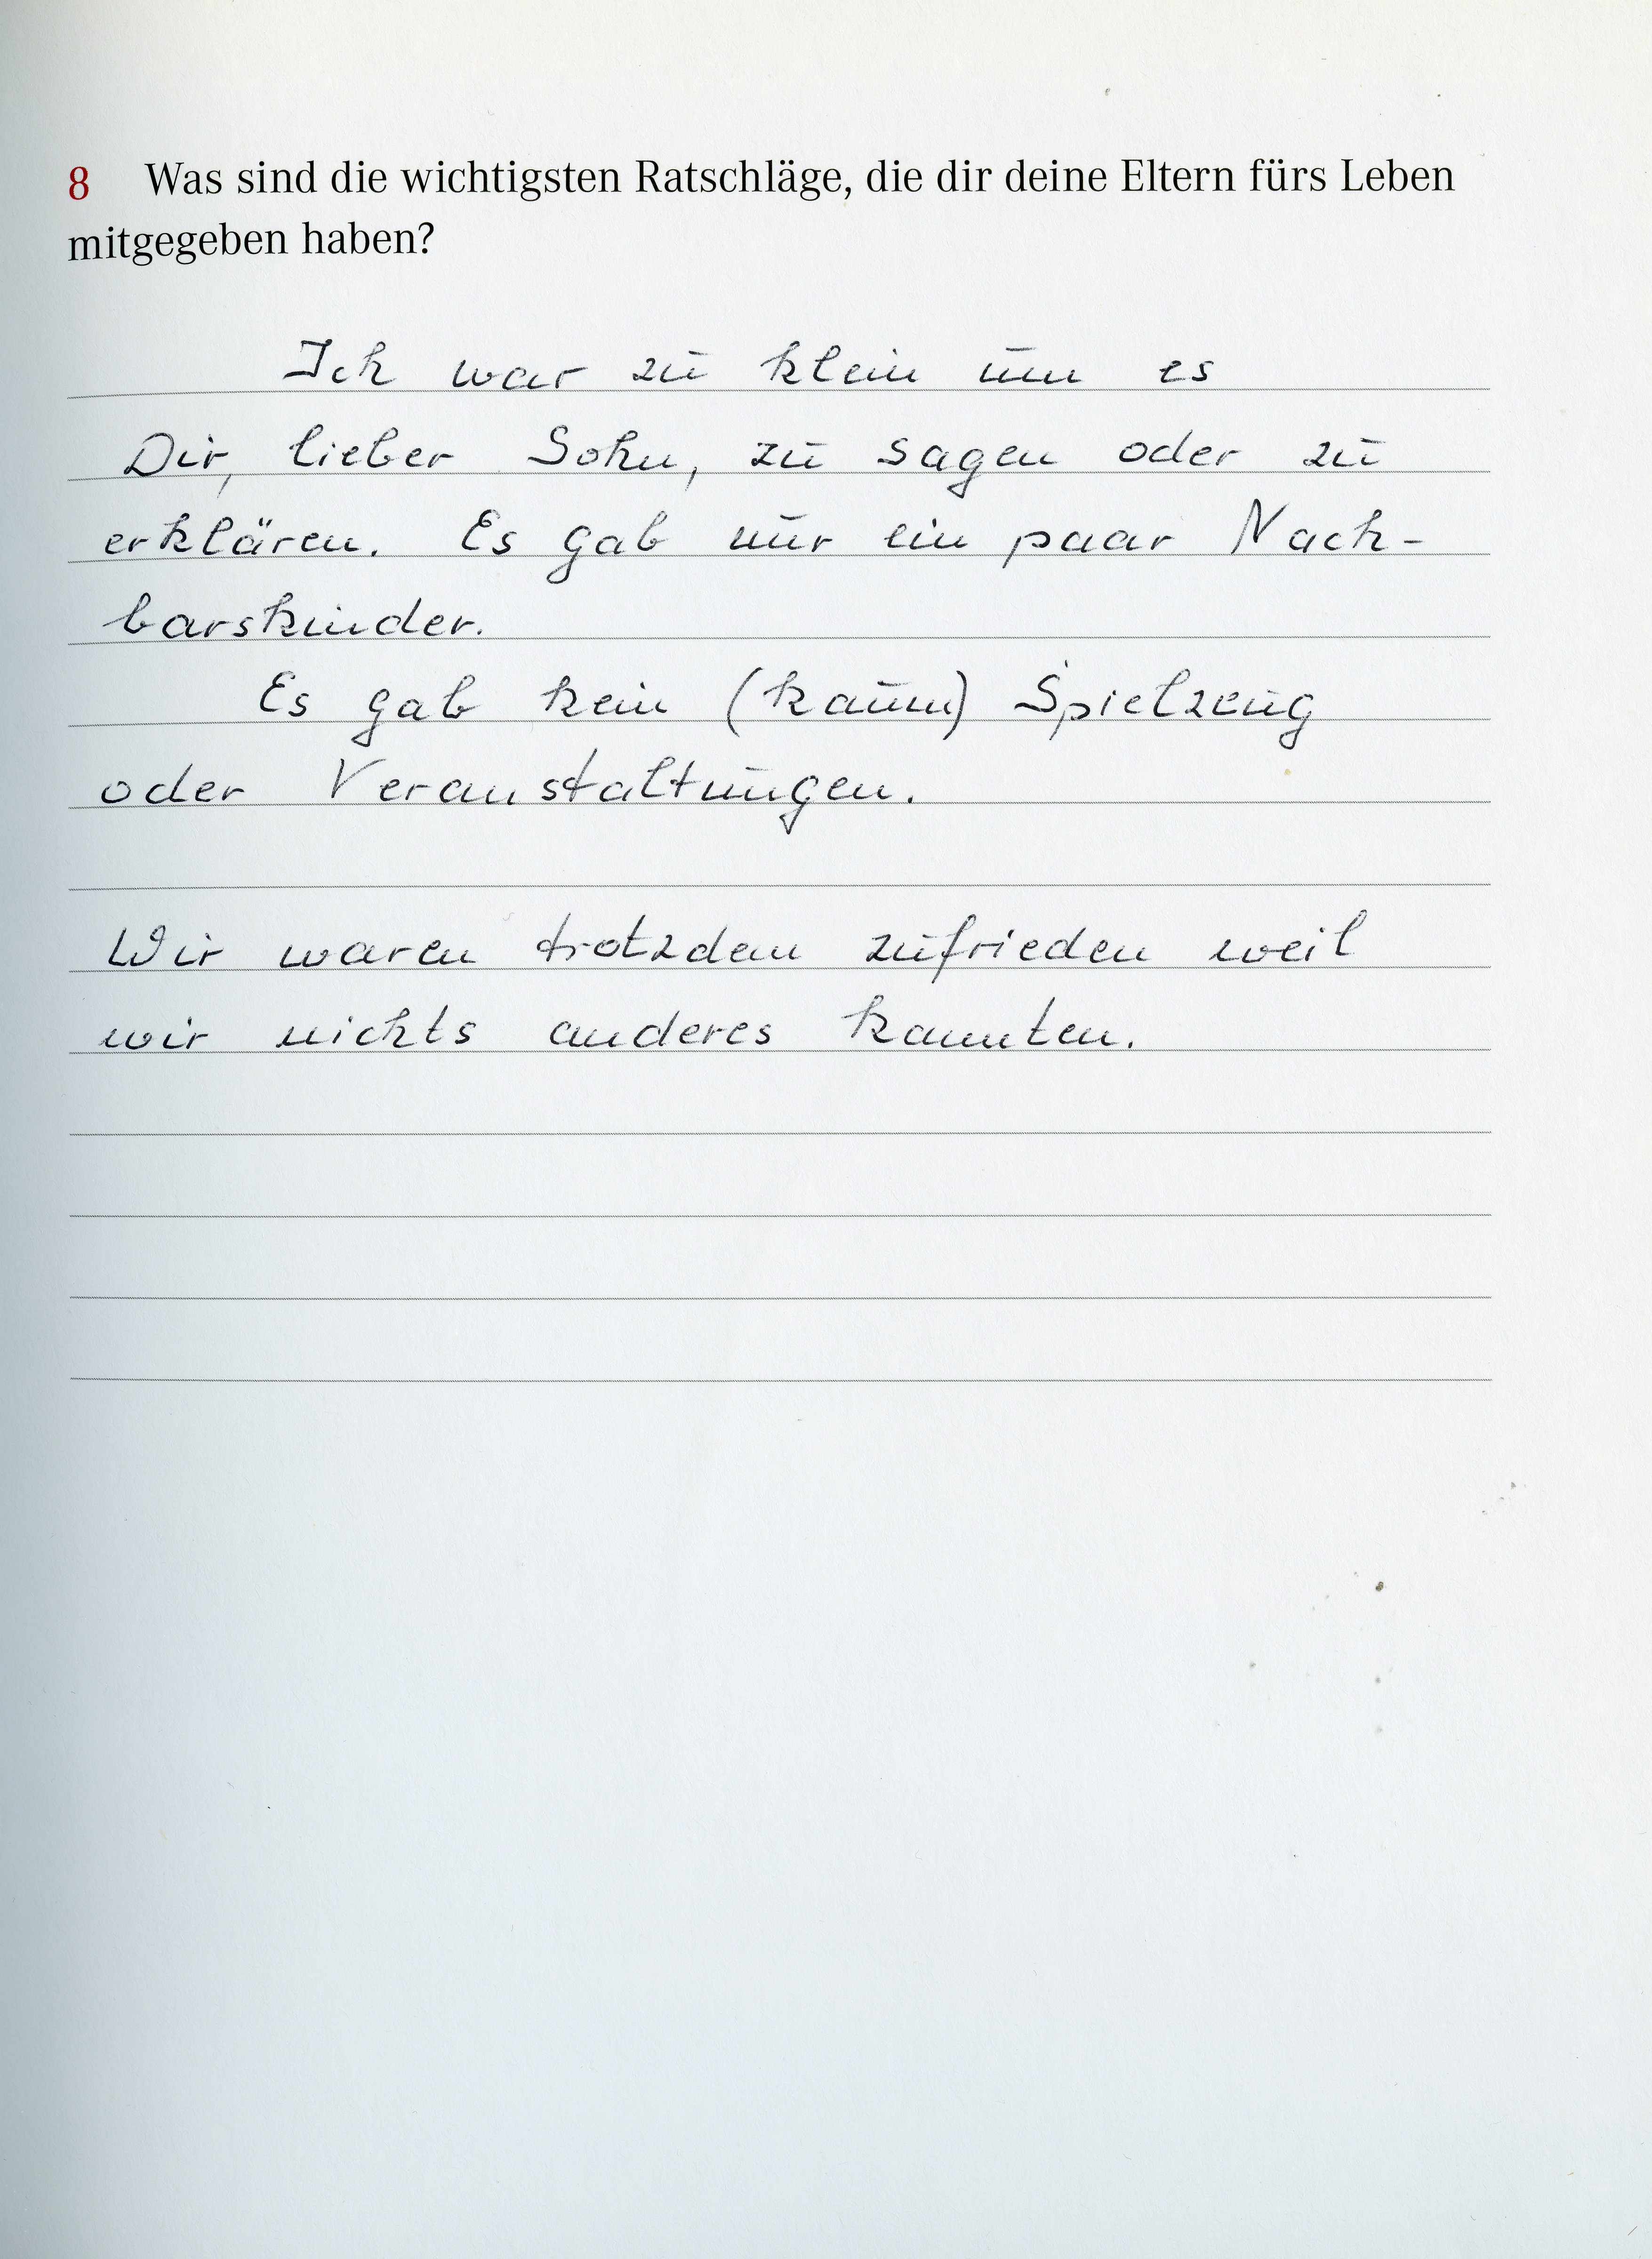 8 Was sind die wichtigsten Ratschläge, die dir deine Eltern fürs Leben
mitgegeben haben?
Ich war zu klein um es
Dir, lieber Sohn, zu sagen oder zu
erklären. Es gab nur ein paar Nach-
barskinder.
Es gab kein (kaum) Spielzeug
oder Veranstaltungen.
Wir waren trotzdem zufrieden weil
wir nichts anderes kannten.